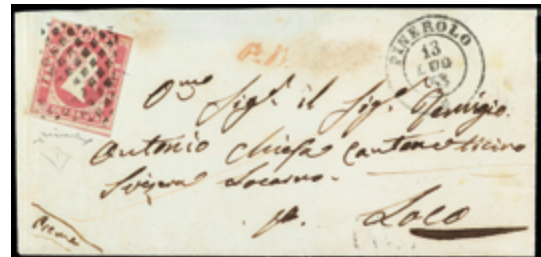 P.D.
PINEROLO
13
LUG
53
Sig.r il Sig.r Remigio
Antonio Chiesa Cantone ticino
Svizzera Locarno
Loco